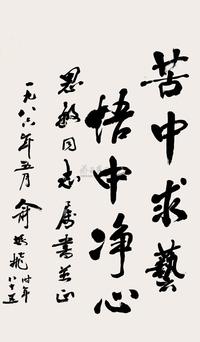 苦中求藝
悟中净心
思敏同志属書並正
一九八六年五月俞振飛时年
八十五